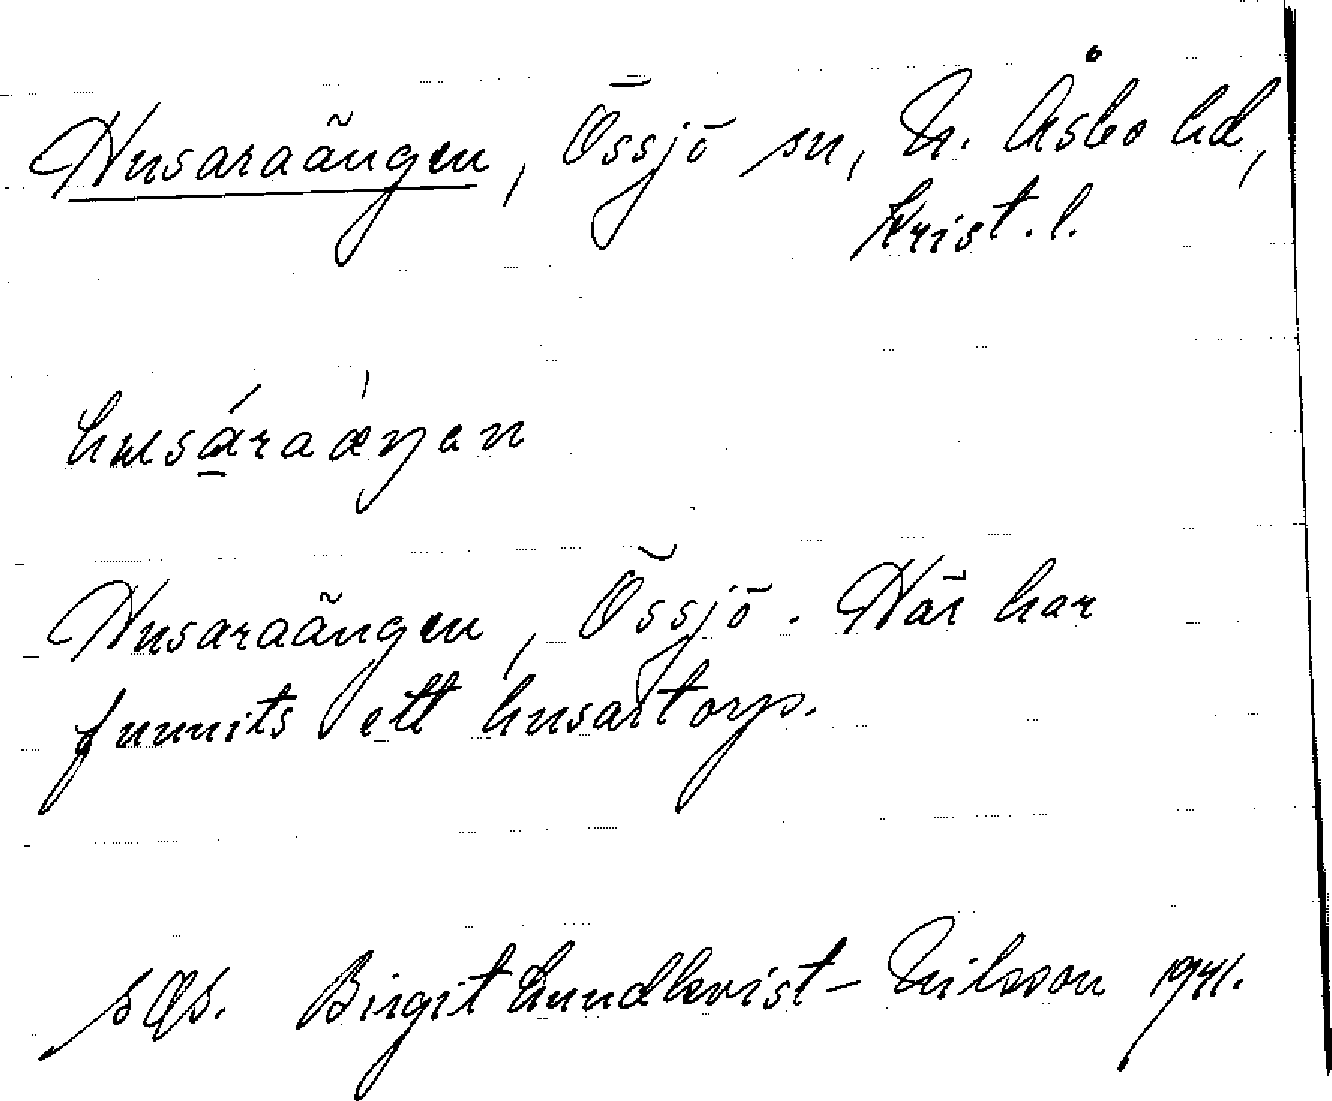 Husaraängen, Össjö sn, N. Åsbo hd,
Krist. l.
husáraǽŋen
Husaraängen, Össjö. Här har
funnits ett husartorp.
Birgit Lundkvist-Nilsson 1941.